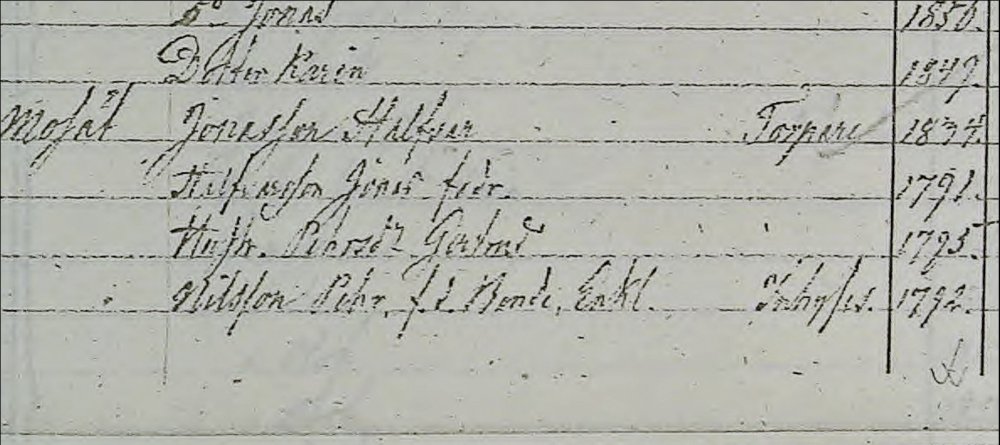 So Jonas 1850.
Dotter Karin 1847.
Mosät Jonasson Halfvar Torpare 1834.
Halfvarsson Jonas fadr. 1791.
Hustr. Pehrsdr Gertrud 1795.
Nilsson Pehr, f.d. Bonde, Enkl. Inhyses. 1792.